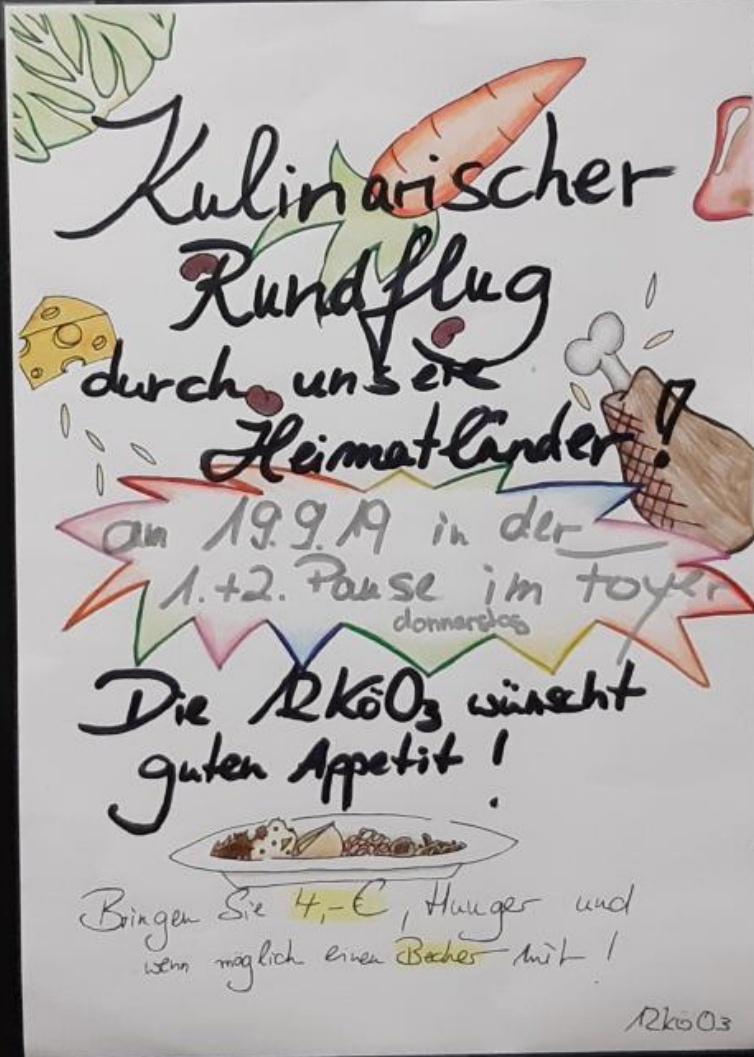 Kulinarischer
Rundflug
durch unsere
Heimatländer!
am 19.9.19 in der
1.+2. Pause im Foyer
donnerstag
Die 12KöO3 wünscht
guten Appetit!
Bringen Sie 4,-€, Hunger und
wenn möglich einen Becher mit!
12köO3